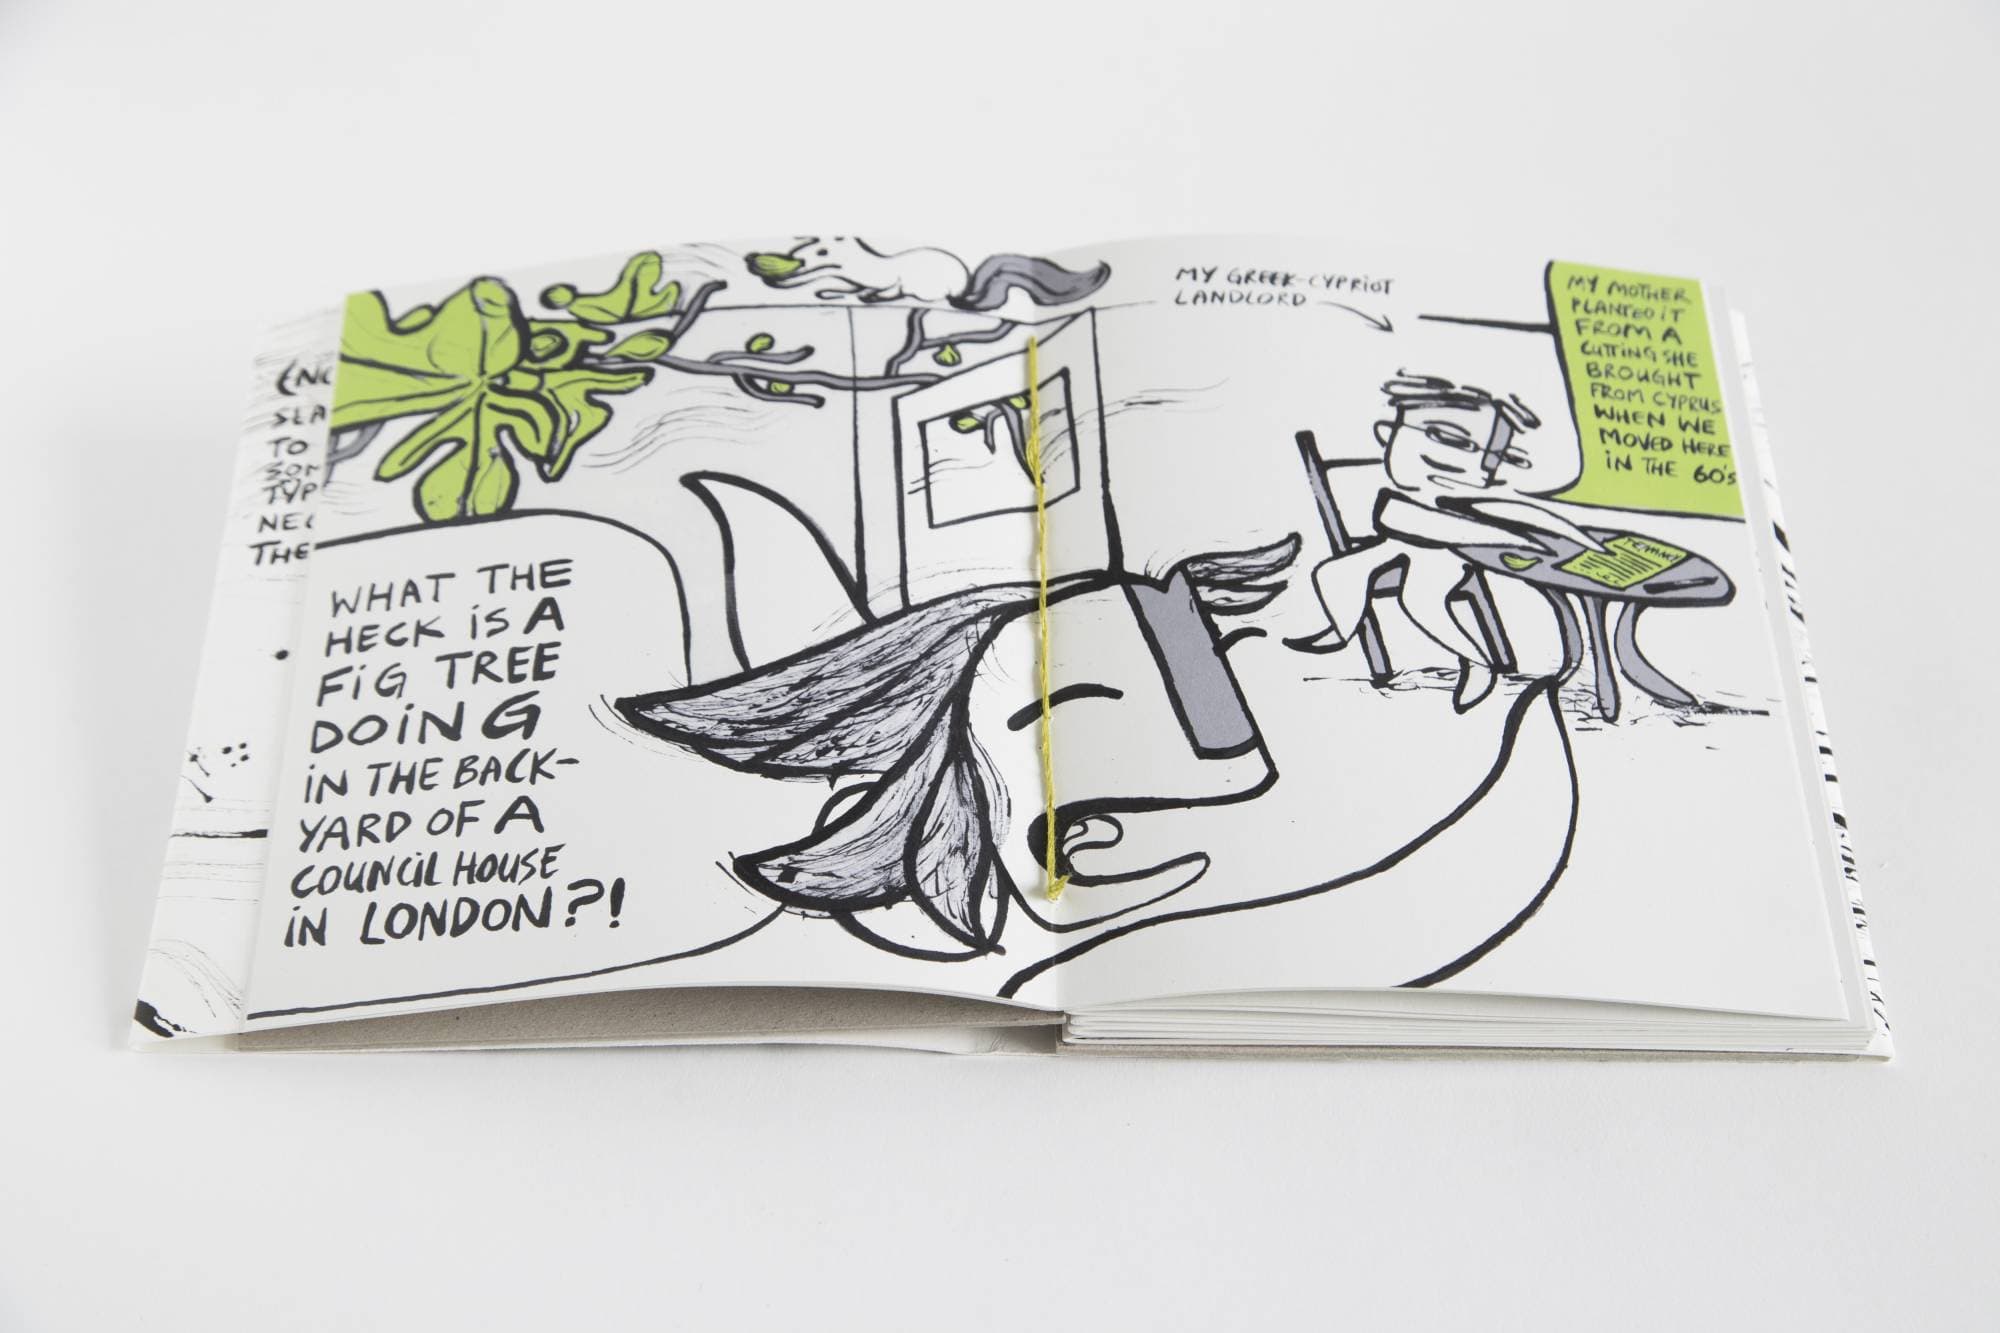 SLA
TO
SOM
TYP
NEC
THE
WHAT THE
HECK iS A
FiG TREE
DOiNG
iN THE BACK-
YARD OF A
COUNCiL HOUSE
iN LONDON?!
MY GREEK-CYPRIOT
LANDLORD
MY MOTHER
PLANTED iT
FROM A
CUTTiNG SHE
BROUGHT
FROM CYPRUS
WHEN WE
MOVED HERE
iN THE 60's